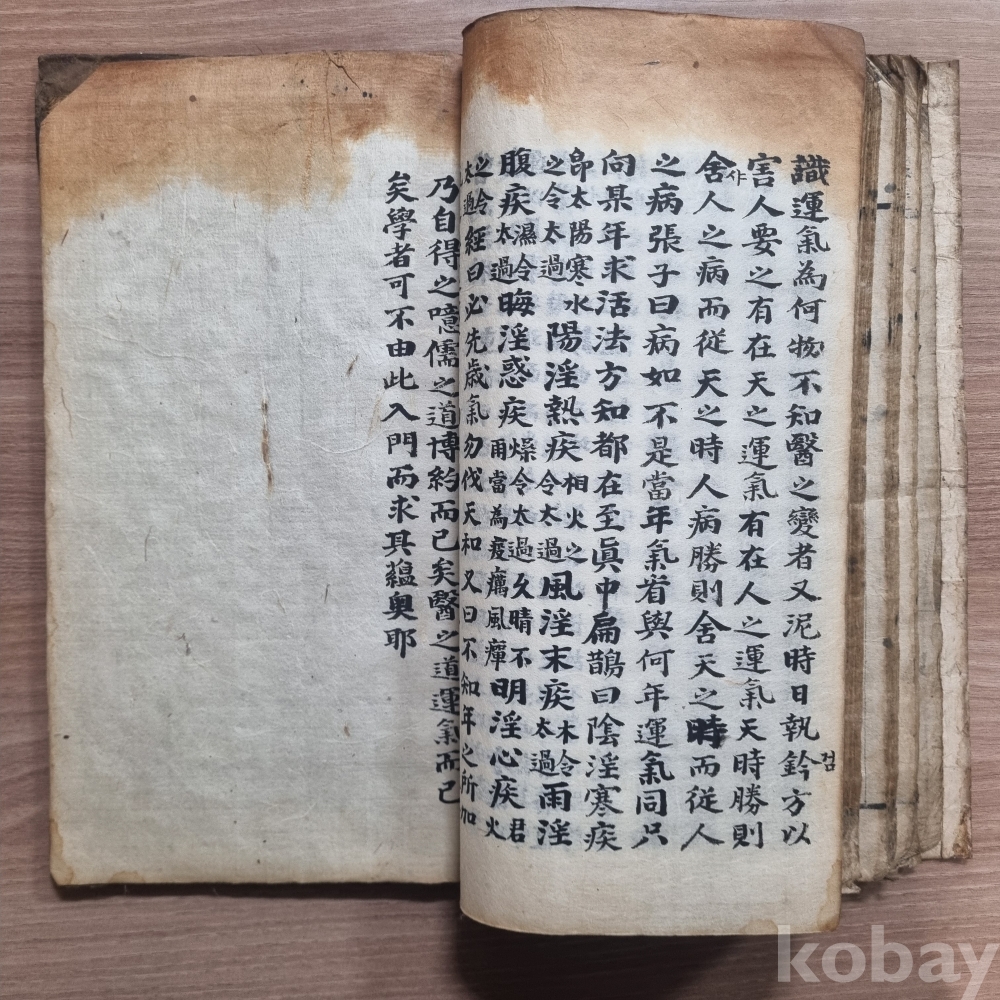 識運氣為何物不知醫之變者又泥時日執鈐方以
검
害人要之有在天之運氣有在人之運氣天時勝則
作
舍人之病而從天之時人病勝則舍天之時而從人
之病張子曰病如不是當年氣看與何年運氣同只
向某年求活法方知都在至眞中扁鵲曰陰淫寒疾
卽太陽寒水
之令太過
陽淫熱疾
相火之
令太過
風淫末疾
木令
太過
雨淫
腹疾
濕令
太過
晦淫惑疾
燥令太過久晴不
雨當為疫癘風癉
明淫心疾
君火
之令
太過
經曰必先歲氣勿伐天和又曰不知年之所加
乃自得之噫儒之道博約而已矣醫之道運氣而已
矣學者可不由此入門而求其蘊奧耶
kobay